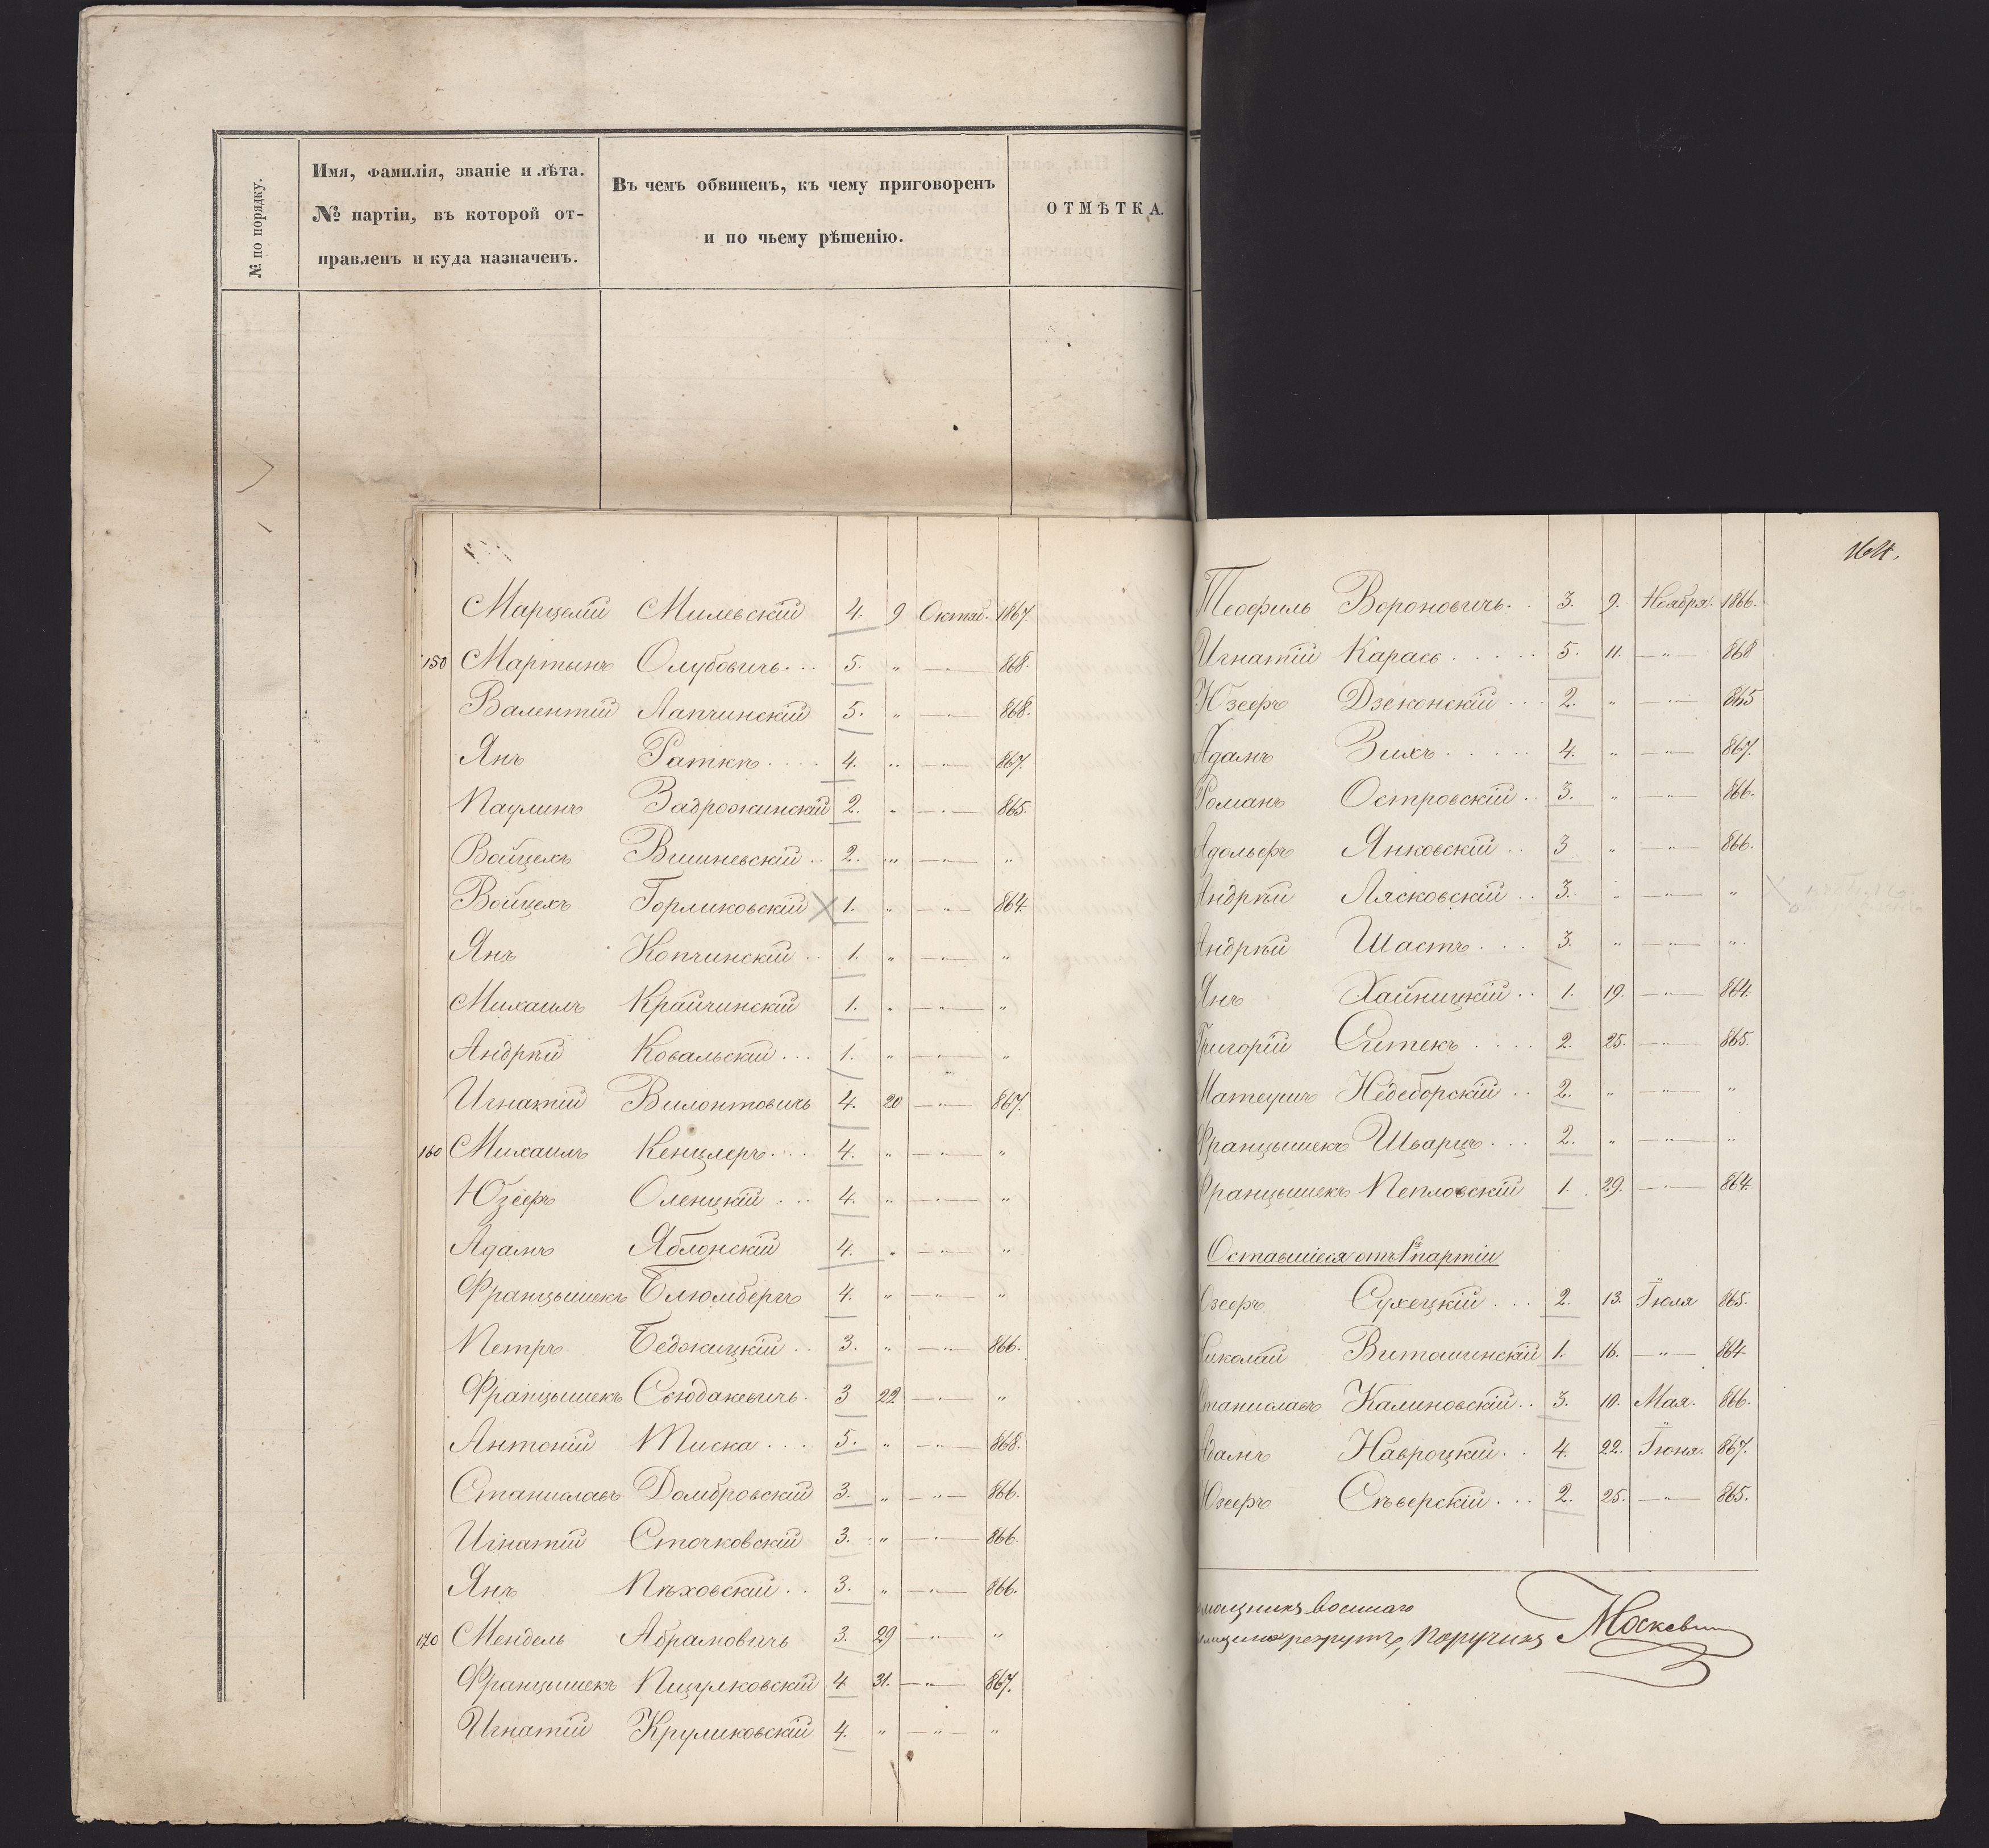 № по порядку.
Имя, фамилія, званіе и лѣта.
№ партіи, въ которой от-
правленъ и куда назначенъ.
Въ чемъ обвиненъ, къ чему приговоренъ
и по чьему рѣшенію.
ОТМѢТКА.
Марцелій Милевскій 4. 9 Октяб. 1867.
150 Мартынъ Олубовичъ... 5. " — " — 868.
Валентій Лапчинскій 5. " — " — 868.
Янъ .... 4. " — " — 867.
Паулинъ Задрожинскій 2. " — " — 865.
Войцехъ Вишневскій .. 2. " — " — "
Войцехъ Горликовскій 1. " — " — 864.
Янъ Копчинскій .. 1. " — " — "
Михаилъ Крайчинскій 1. " — " — "
Андрѣй Ковальскій ... 1. " — " — "
Игнатій Вилонтовичъ 4. 20 — " — 867.
160 Михаилъ Кенцлеръ.... 4. " — " — "
Юзефъ Оленцкій ... 4. " — " — "
Адамъ Яблонскій 4. " — " — "
Францышекъ Блюмбергъ 4. " — " — "
Петръ Беджицкій .. 3. " — " — 866.
Францышекъ 3 22 — " — "
Антоній Тиска.... 5. " — " — 868.
Станиславъ Домбровскій 3. " — " — 866.
Игнатій Сточковскій 3. " — " — 866.
Янъ Пѣховскій .. 3. " — " — 866.
170 Мендель Абрамовичъ 3. 29 — " — "
Францышекъ Пицулковскій 4 31. — " — 867.
Игнатій Круликовскій 4. " — " — "
164.
Теофиль Вороновичъ.. 3. 9. Ноября. 1866.
Игнатій Карась ..... 5. 11. — " — 868
Юзефъ Дзеконскій ... 2. " — " — 865
Адамъ Зихъ ..... 4. " — " — 867.
Романъ Островскій .. 3. " — " — 866.
Адольфъ Янковскій .. 3 " — " — 866.
Андрѣй Лясковскій .. 3. " — " — "
Андрѣй Шастъ ... 3. " — " — "
Янъ Хайницкій .. 1. 19. — " — 864.
Григорій Ситекъ .... 2. 25. — " — 865.
Матеушъ Недеборскій .. 2. " — " — "
Францышекъ Шварцъ ... 2. " — " — "
Францышекъ Пепловскій 1. 29. — " — 864.
Оставшіеся отъ партіи
Озефъ Сухецкій ... 2. 13. Іюля 865.
Николай Витошинскій 1. 16. — " — 864
Станиславъ Калиновскій .. 3. 10. Мая. 866.
Адамъ Навроцкій .. 4. 22. Іюня. 867.
Юзефъ Сѣверскій ... 2. 25. — " — 865.
Поручикъ